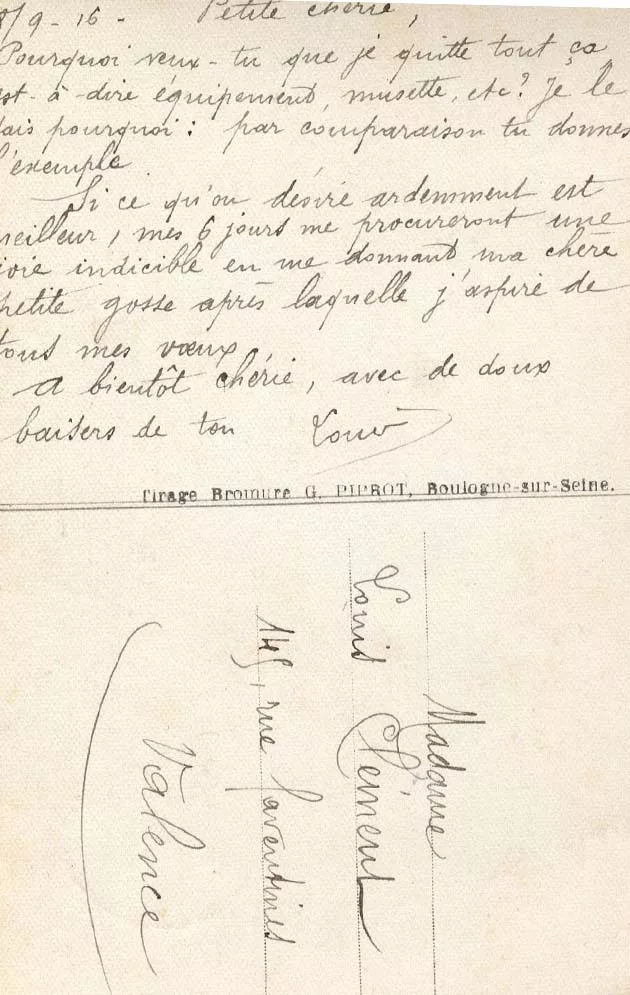 8/9-16- Petite chérie,
Pourquoi veux-tu que je quitte tout ça
est-à-dire équipement, musette, etc? Je le
fais pourquoi: par comparaison tu donnes
l'exemple
Si ce qu'on désire ardemment est
meilleur, mes 6 jours me procureront une
joie indicible en me donnant ma chère
petite gosse après laquelle j'aspire de
tous mes vœux
A bientôt chérie, avec de doux
baisers de ton Louis
Tirage Bromure G. PIPROT, Boulogne-sur-Seine.
Madame
Louis Clément
145, rue Faventines
Valence